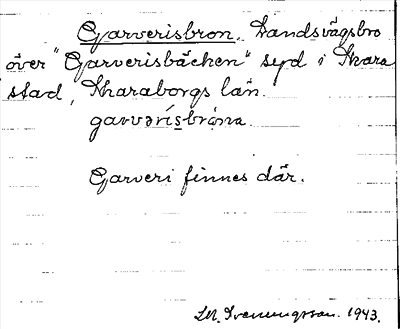 Garverisbron. Landsvägsbro
över "Garverisbäcken" syd i Skara
stad, Skaraborgs län.
garvərísbróna
Garveri finnes där.
1943.